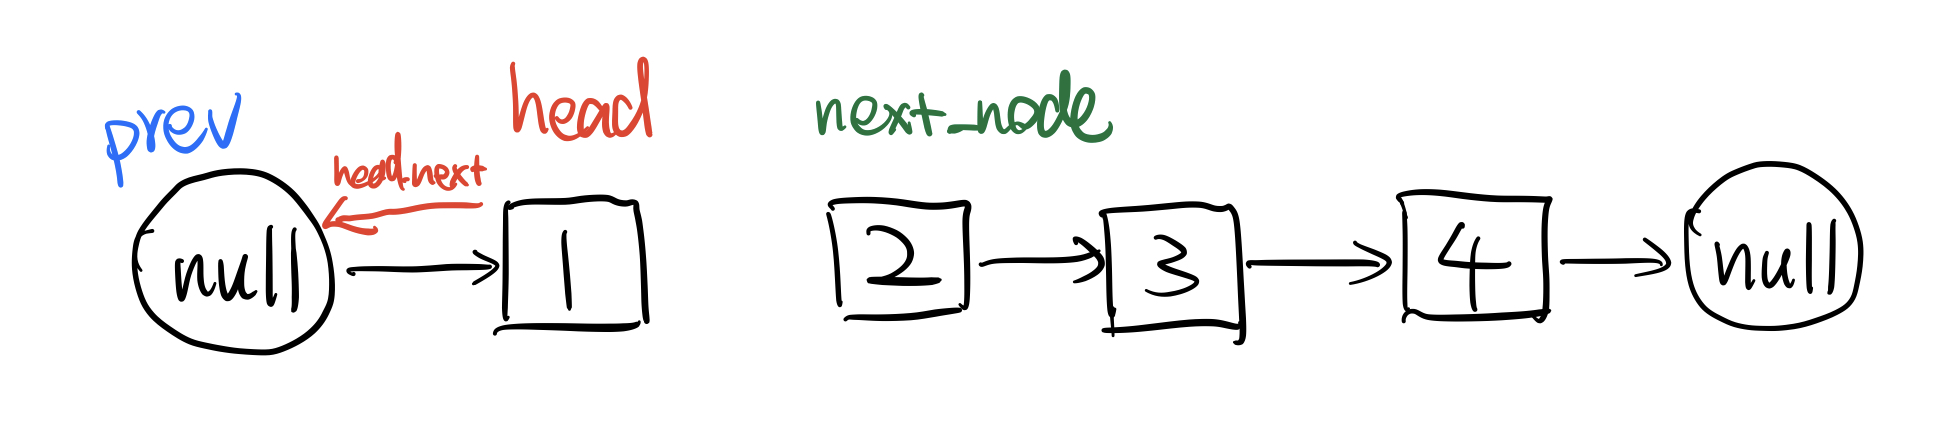 prev
head
next_node
head.next
null
1
2
3
4
null